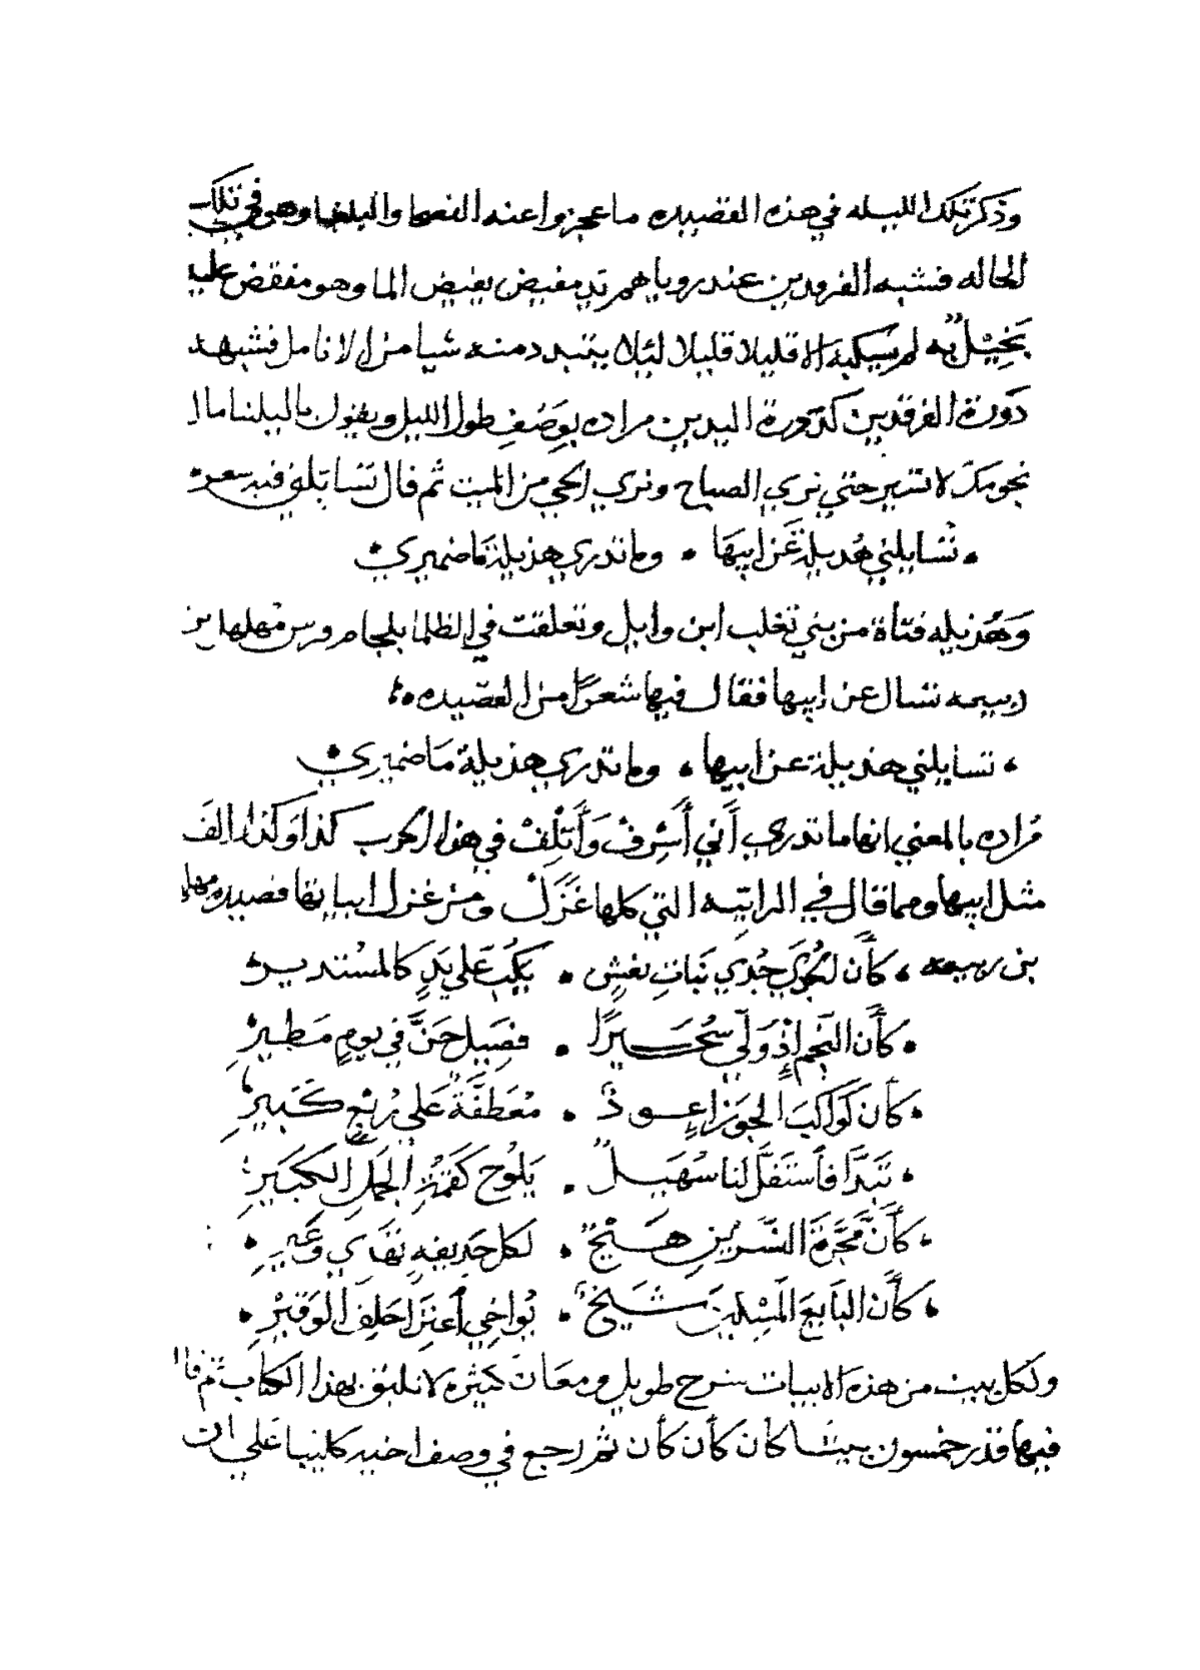 وذكر تلك الليله في هذه القصيده ما عجزوا عنه الفصحا والبلغا وهو في تلك
الحاله فشبه الفرقدين عند روياهم تيد مفيض يفيض الما وهو مفقض عليه
بَخِيْلٌ به لم يسكبه الا قليلا قليلا لئلا يتبدد منه شيا من الانامل فشبهه
دَورة الفرقدين كدَورة اليدين مراده بوصفِ طول الليل ويقول ياليلنا ما ا
نجومك لا تسير حتي نري الصباح ونري الحي من الميت ثم قال تسايلني فيه سعر
تُسَايلني هُديلة عَن ابيهَا وما تدري هذيلة مَا ضميري
وَهُذيله فتاة من بني تغلب ابن وايل وتعلقت في الظلما بلجام فرس مهلهل بن
ربيعه تسال عن ابيها فقال فيها شعرًا من القصيده
تسايلني هذيلة عن ابيها وما تدري هذيلة مَا ضميري
مُراده بالمعني انها ما تدري أَني أَسْرِفْ وَأَتلِفْ في هذا الحرب كذا وَكذا الفَ
مثل ابيها ومما قال في المراتيه التي كلها غَزَلٌ ومن غزل ابياتها قصيده مهلهل
بن ربيعه كأَن الجَدي جَدي بَناتِ نعشٍ يكبّ عَلي يَدٍ كالمستدير
كأَن النَجم إِذ وَلّي سُحَيرًا فصَيل حَنَّ في يومٍ مَطيرِ
كأن كَوَاكبَ الجوزاءِ عوذٌ مُعَطفَّةٌ عَلي رُبَعٍ كَبيرِ
تَبَدَّا فأستَقلَّ لنا سُهَيلٌ يَلوُح كقمّةِ الجَمل الكَبيرِ
كأَنَّ مَجَرةَ النسْرينِ هَنجٌ لكل حَديقه
كأَن التابعَ المسْكينَ شَيخٌ يُواخي أعنزًا حَلِفَ الوَقيرِ
ولكل بيت من هذه الابيات شرح طويل ومعَان كثيره لا تليق بهذا الكتاب ثم قال
فيها قدر خمسون بيتا كأن كأن كأن ثم رجع في وصف اخيه كليبا عَلي ان